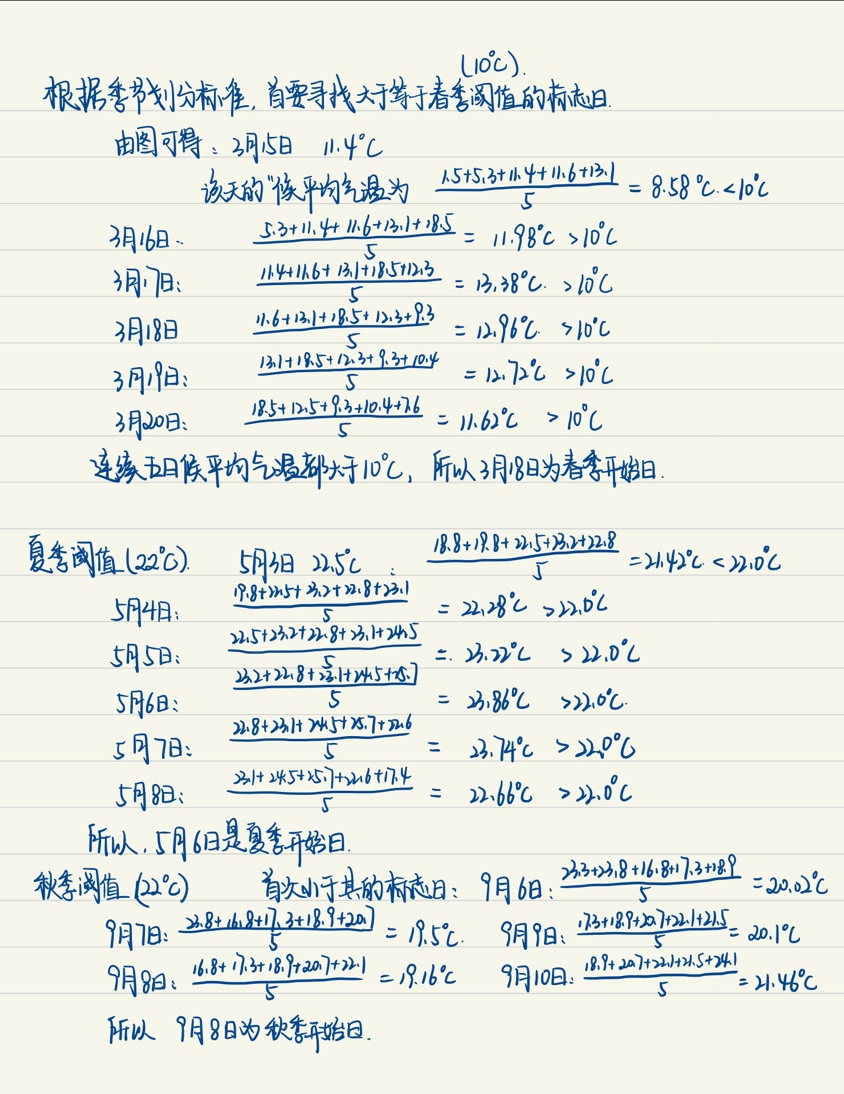 (10℃).
根据季节划分标准,首要寻找大于等于春季阈值的标志日.
由图可得:3月15日 11.4℃
该天的"候平均气温为 (1.5+5.3+11.4+11.6+13.1)/5 = 8.58℃.<10℃
3月16日. (5.3+11.4+11.6+13.1+18.5)/5 = 11.98℃ >10℃
3月17日: (11.4+11.6+13.1+18.5+12.3)/5 = 13.38℃. >10℃
3月18日 (11.6+13.1+18.5+12.3+9.3)/5 = 12.96℃ >10℃
3月19日: (13.1+18.5+12.3+9.3+10.4)/5 = 12.72℃ >10℃
3月20日: (18.5+12.5+9.3+10.4+7.6)/5 = 11.62℃ >10℃
连续五日候平均气温都大于10℃, 所以3月18日为春季开始日.
夏季阈值(22℃). 5月3日 22.5℃ : (18.8+19.8+22.5+23.2+22.8)/5 =21.42℃<22.0℃
5月4日: (19.8+22.5+23.2+22.8+23.1)/5 = 22.28℃ >22.0℃
5月5日: (22.5+23.2+22.8+23.1+24.5)/5 = 23.22℃ >22.0℃
5月6日: (23.2+22.8+23.1+24.5+25.7)/5 = 23.86℃ >22.0℃.
5月7日: (22.8+23.1+24.5+25.7+22.6)/5 = 23.74℃ >22.0℃
5月8日: (23.1+24.5+25.7+22.6+17.4)/5 = 22.66℃ >22.0℃
所以,5月6日是夏季开始日.
秋季阈值(22℃) 首次小于其的标志日: 9月6日: (23.3+23.8+16.8+17.3+18.9)/5 =20.02℃
9月7日: (23.8+16.8+17.3+18.9+20.7)/5 = 19.5℃. 9月9日: (17.3+18.9+20.7+22.1+21.5)/5 = 20.1℃
9月8日: (16.8+17.3+18.9+20.7+22.1)/5 = 19.16℃ 9月10日: (18.9+20.7+22.1+21.5+24.1)/5 = 21.46℃
所以 9月8日为秋季开始日.